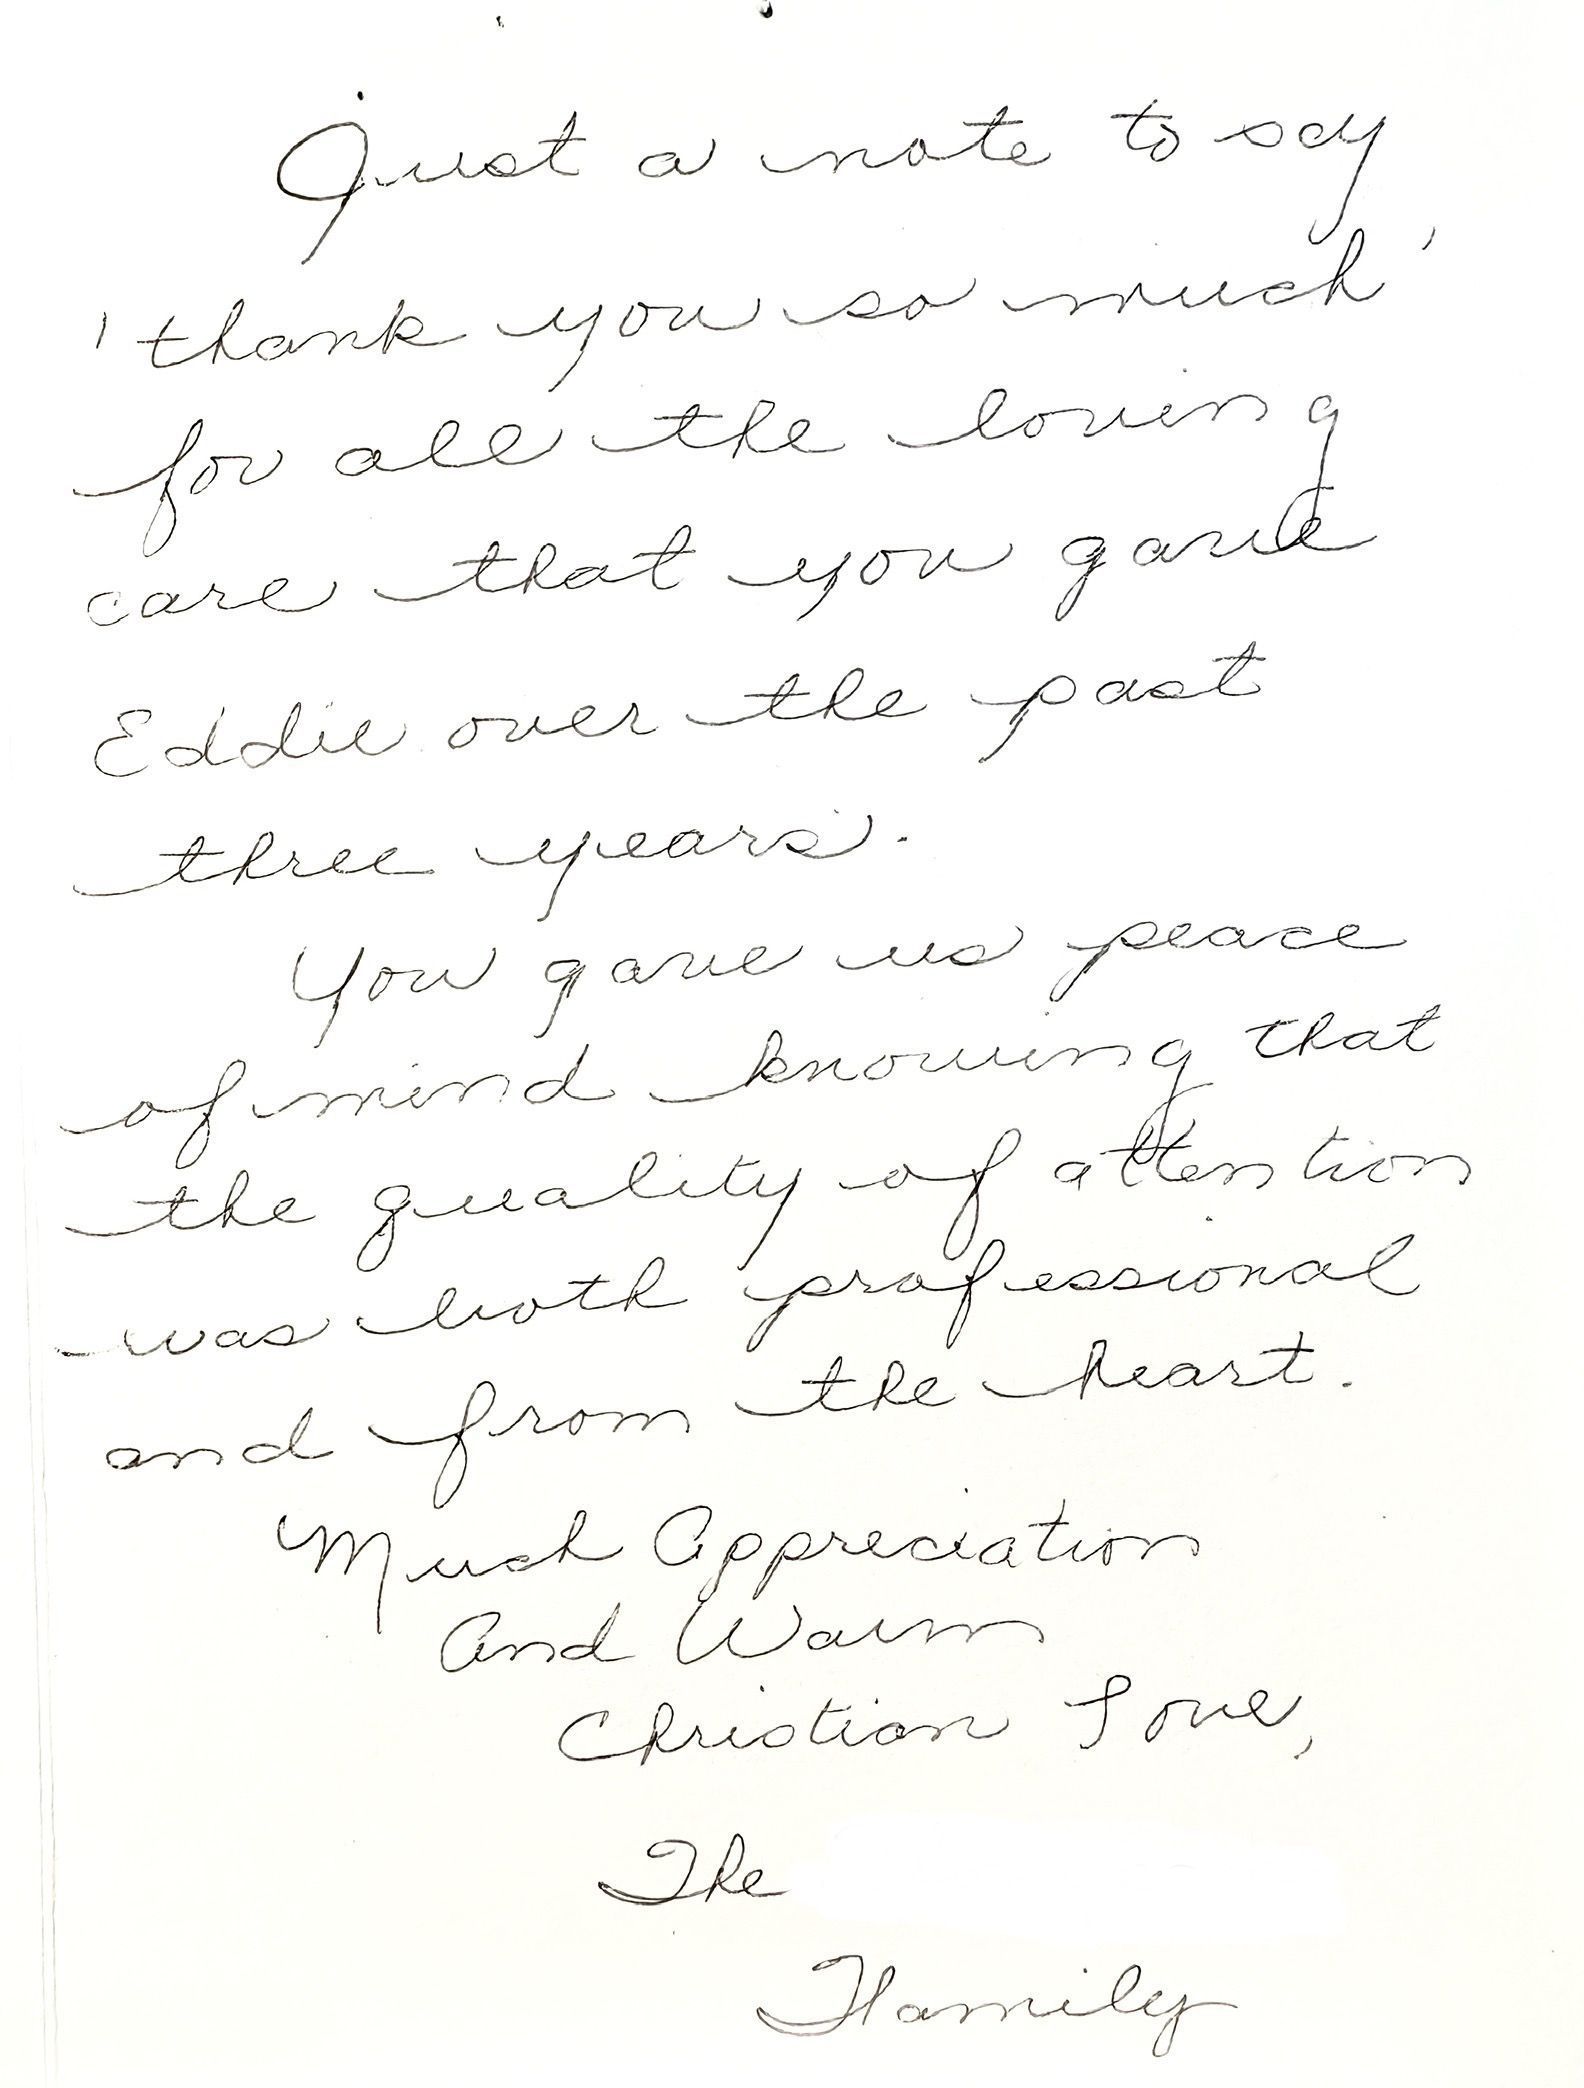 Just a note to say
'thank you so much'
for all the loving
care that you gave
Eddie over the past
three years.
You gave us peace
of mind knowing that
the quality of attention
was both professional
and from the heart.
Much Appreciation
And Warm
Christian Love,
The
Family